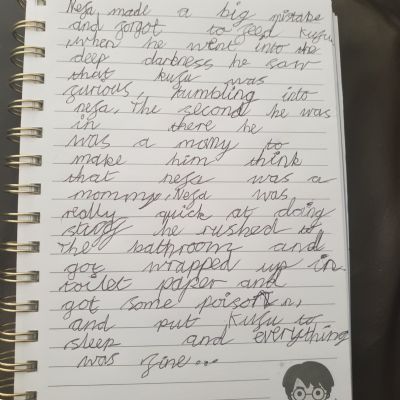 Neja made a big mistake
and forgot to feed Kufu
, when he went into the
deep darkness he saw
that kufu was
furious, tumbling into
neja, The second he was
in there he
was a many to
make him think
that neja was a
mommy, Neja was
really quick at doing
study he rushed to
The bathroom and
got wrapped up in
toilet paper and
got some poison,
and put Kufu to
sleep and everything
was fine...